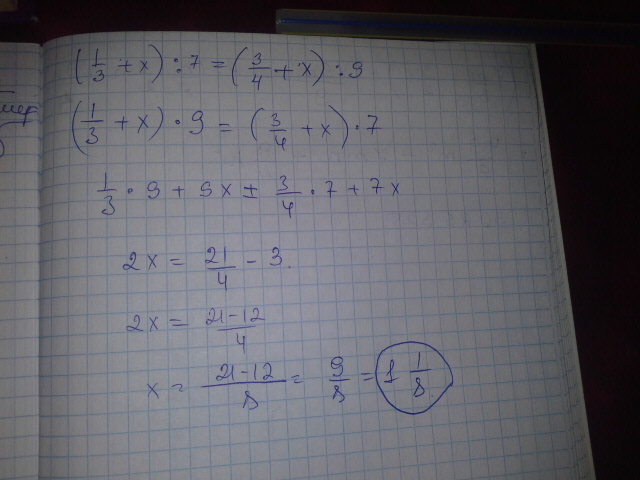 (1/3 + x) : 7 = (3/4 + x) : 9
(1/3 + x) · 9 = (3/4 + x) · 7
1/3 · 9 + 9x = 3/4 · 7 + 7x
2x = 21/4 - 3.
2x = 21-12/4
x = 21-12/8 = 9/8 = 1 1/8